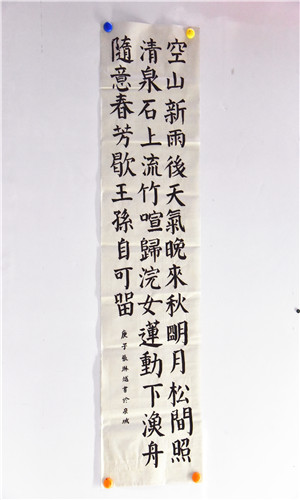 空山新雨後天氣晚來秋明月松間照
清泉石上流竹喧歸浣女蓮動下漁舟
隨意春芳歇王孫自可留
庚子張琳書於泉城